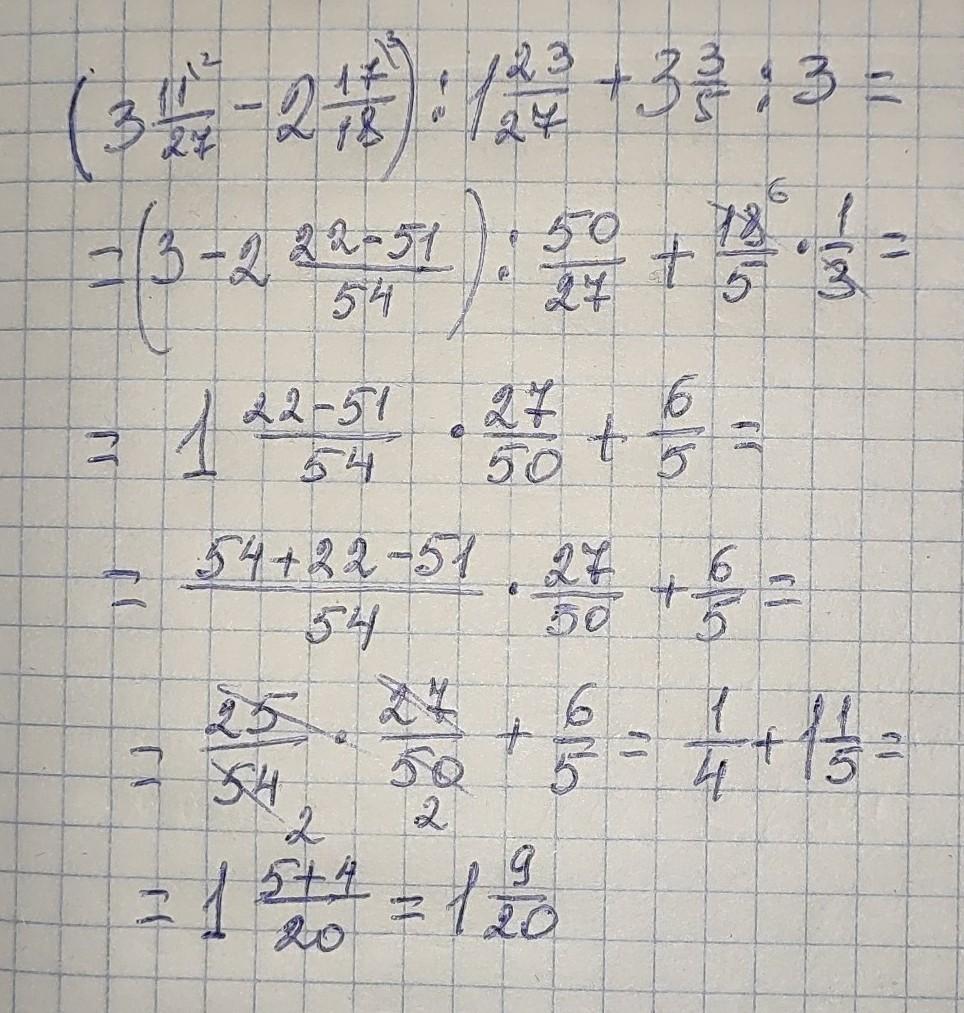 (3 11\2/27 - 2 17\3/18) : 1 23/27 + 3 3/5 : 3 =
= (3 - 2 22-51/54) : 50/27 + 18 6/5 · 1/3 =
= 1 22-51/54 · 27/50 + 6/5 =
= 54+22-51/54 · 27/50 + 6/5 =
= 25/54 2 · 27/50 2 + 6/5 = 1/4 + 1 1/5 =
= 1 5+4/20 = 1 9/20